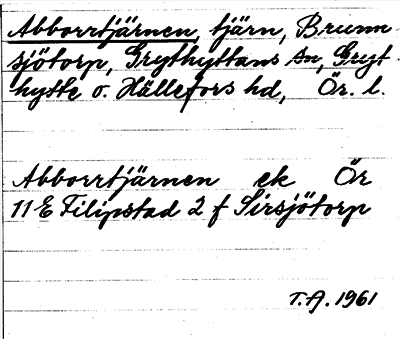 Abborrtjärnen, tjärn, Brunn
sjötorp, Grythyttans sn, Gryt
hytte o. Hällefors hd, Ör. l.
Abborrtjärnen ek Ör
11 E Filipstad 2 f Sirsjötorp
T.A. 1961